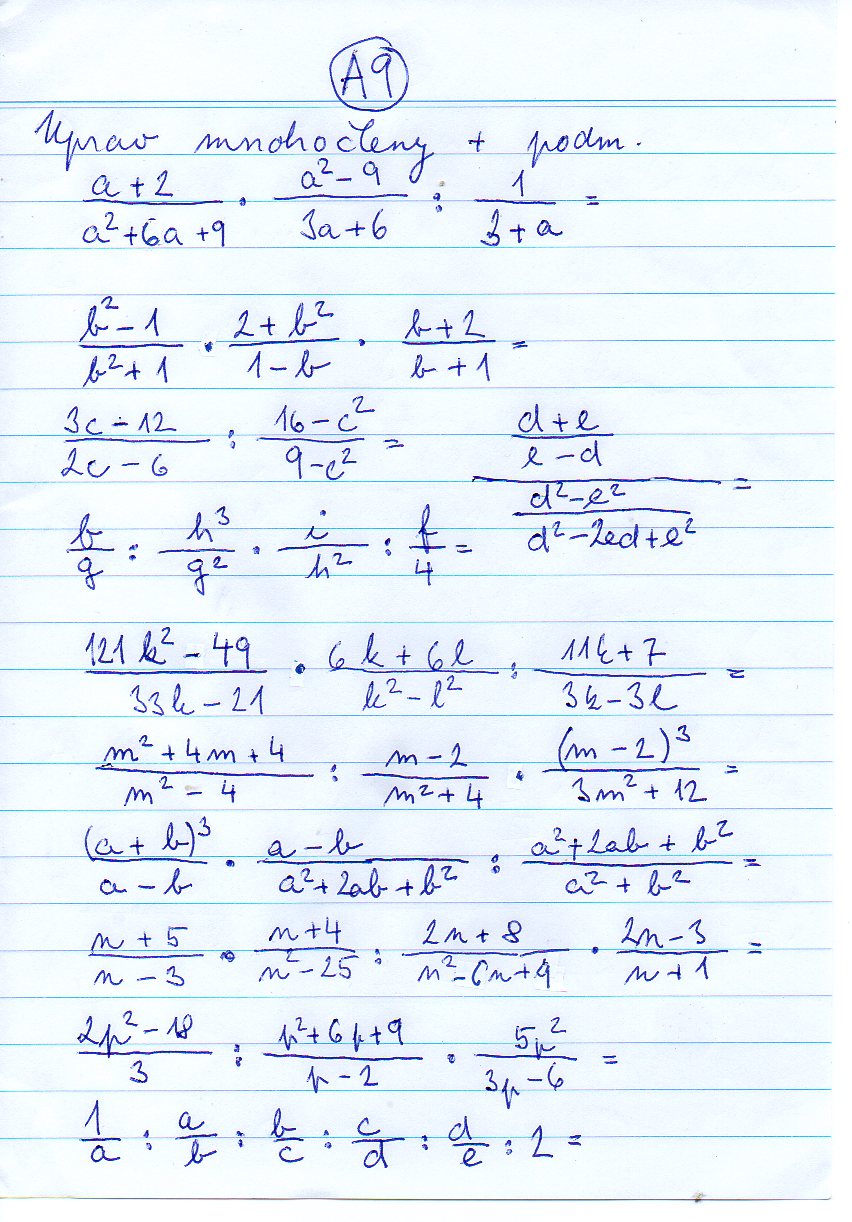 A9
Uprav mnohočleny + podm.
(a+2)/(a²+6a+9) · (a²-9)/(3a+6) : 1/(3+a) =
(b²-1)/(b²+1) · (2+b²)/(1-b) · (b+2)/(b+1) =
(3c-12)/(2c-6) : (16-c²)/(9-c²) =
((d+e)/(e-d))/((d²-e²)/(d²-2ed+e²)) =
b/g : h³/g² · i/h² : f/4 =
(121k²-49)/(33k-21) · (6k+6l)/(k²-l²) : (11k+7)/(3k-3l) =
(m²+4m+4)/(m²-4) : (m-2)/(m²+4) · (m-2)³/(3m²+12) =
(a+b)³/(a-b) · (a-b)/(a²+2ab+b²) : (a²+2ab+b²)/(a²+b²) =
(n+5)/(n-3) · (n+4)/(n²-25) : (2n+8)/(n²-6n+9) · (2n-3)/(n+1) =
(2p²-18)/3 : (p²+6p+9)/(p-2) · 5p²/(3p-6) =
1/a : a/b : b/c : c/d : d/e : 2 =